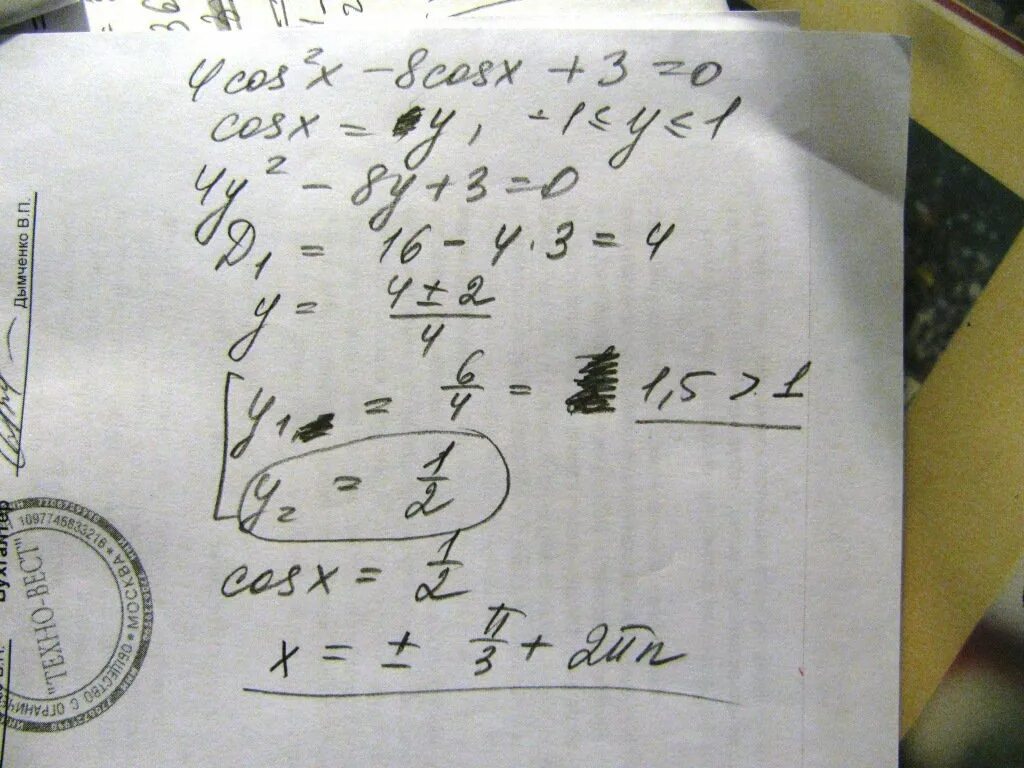 4cos²x - 8cosx + 3 = 0
cosx = y, -1 ≤ y ≤ 1
4y² - 8y + 3 = 0
D₁ = 16 - 4·3 = 4
y = (4 ± 2)/4
y₁ = 6/4 = 1,5 > 1
y₂ = 1/2
cosx = 1/2
x = ± π/3 + 2πn
Дымченко В.П.
Бухгалтер
1097746833216 * МОСКВА *
"ТЕХНО-ВЕСТ"
ОБЩЕСТВО С ОГРАНИЧ